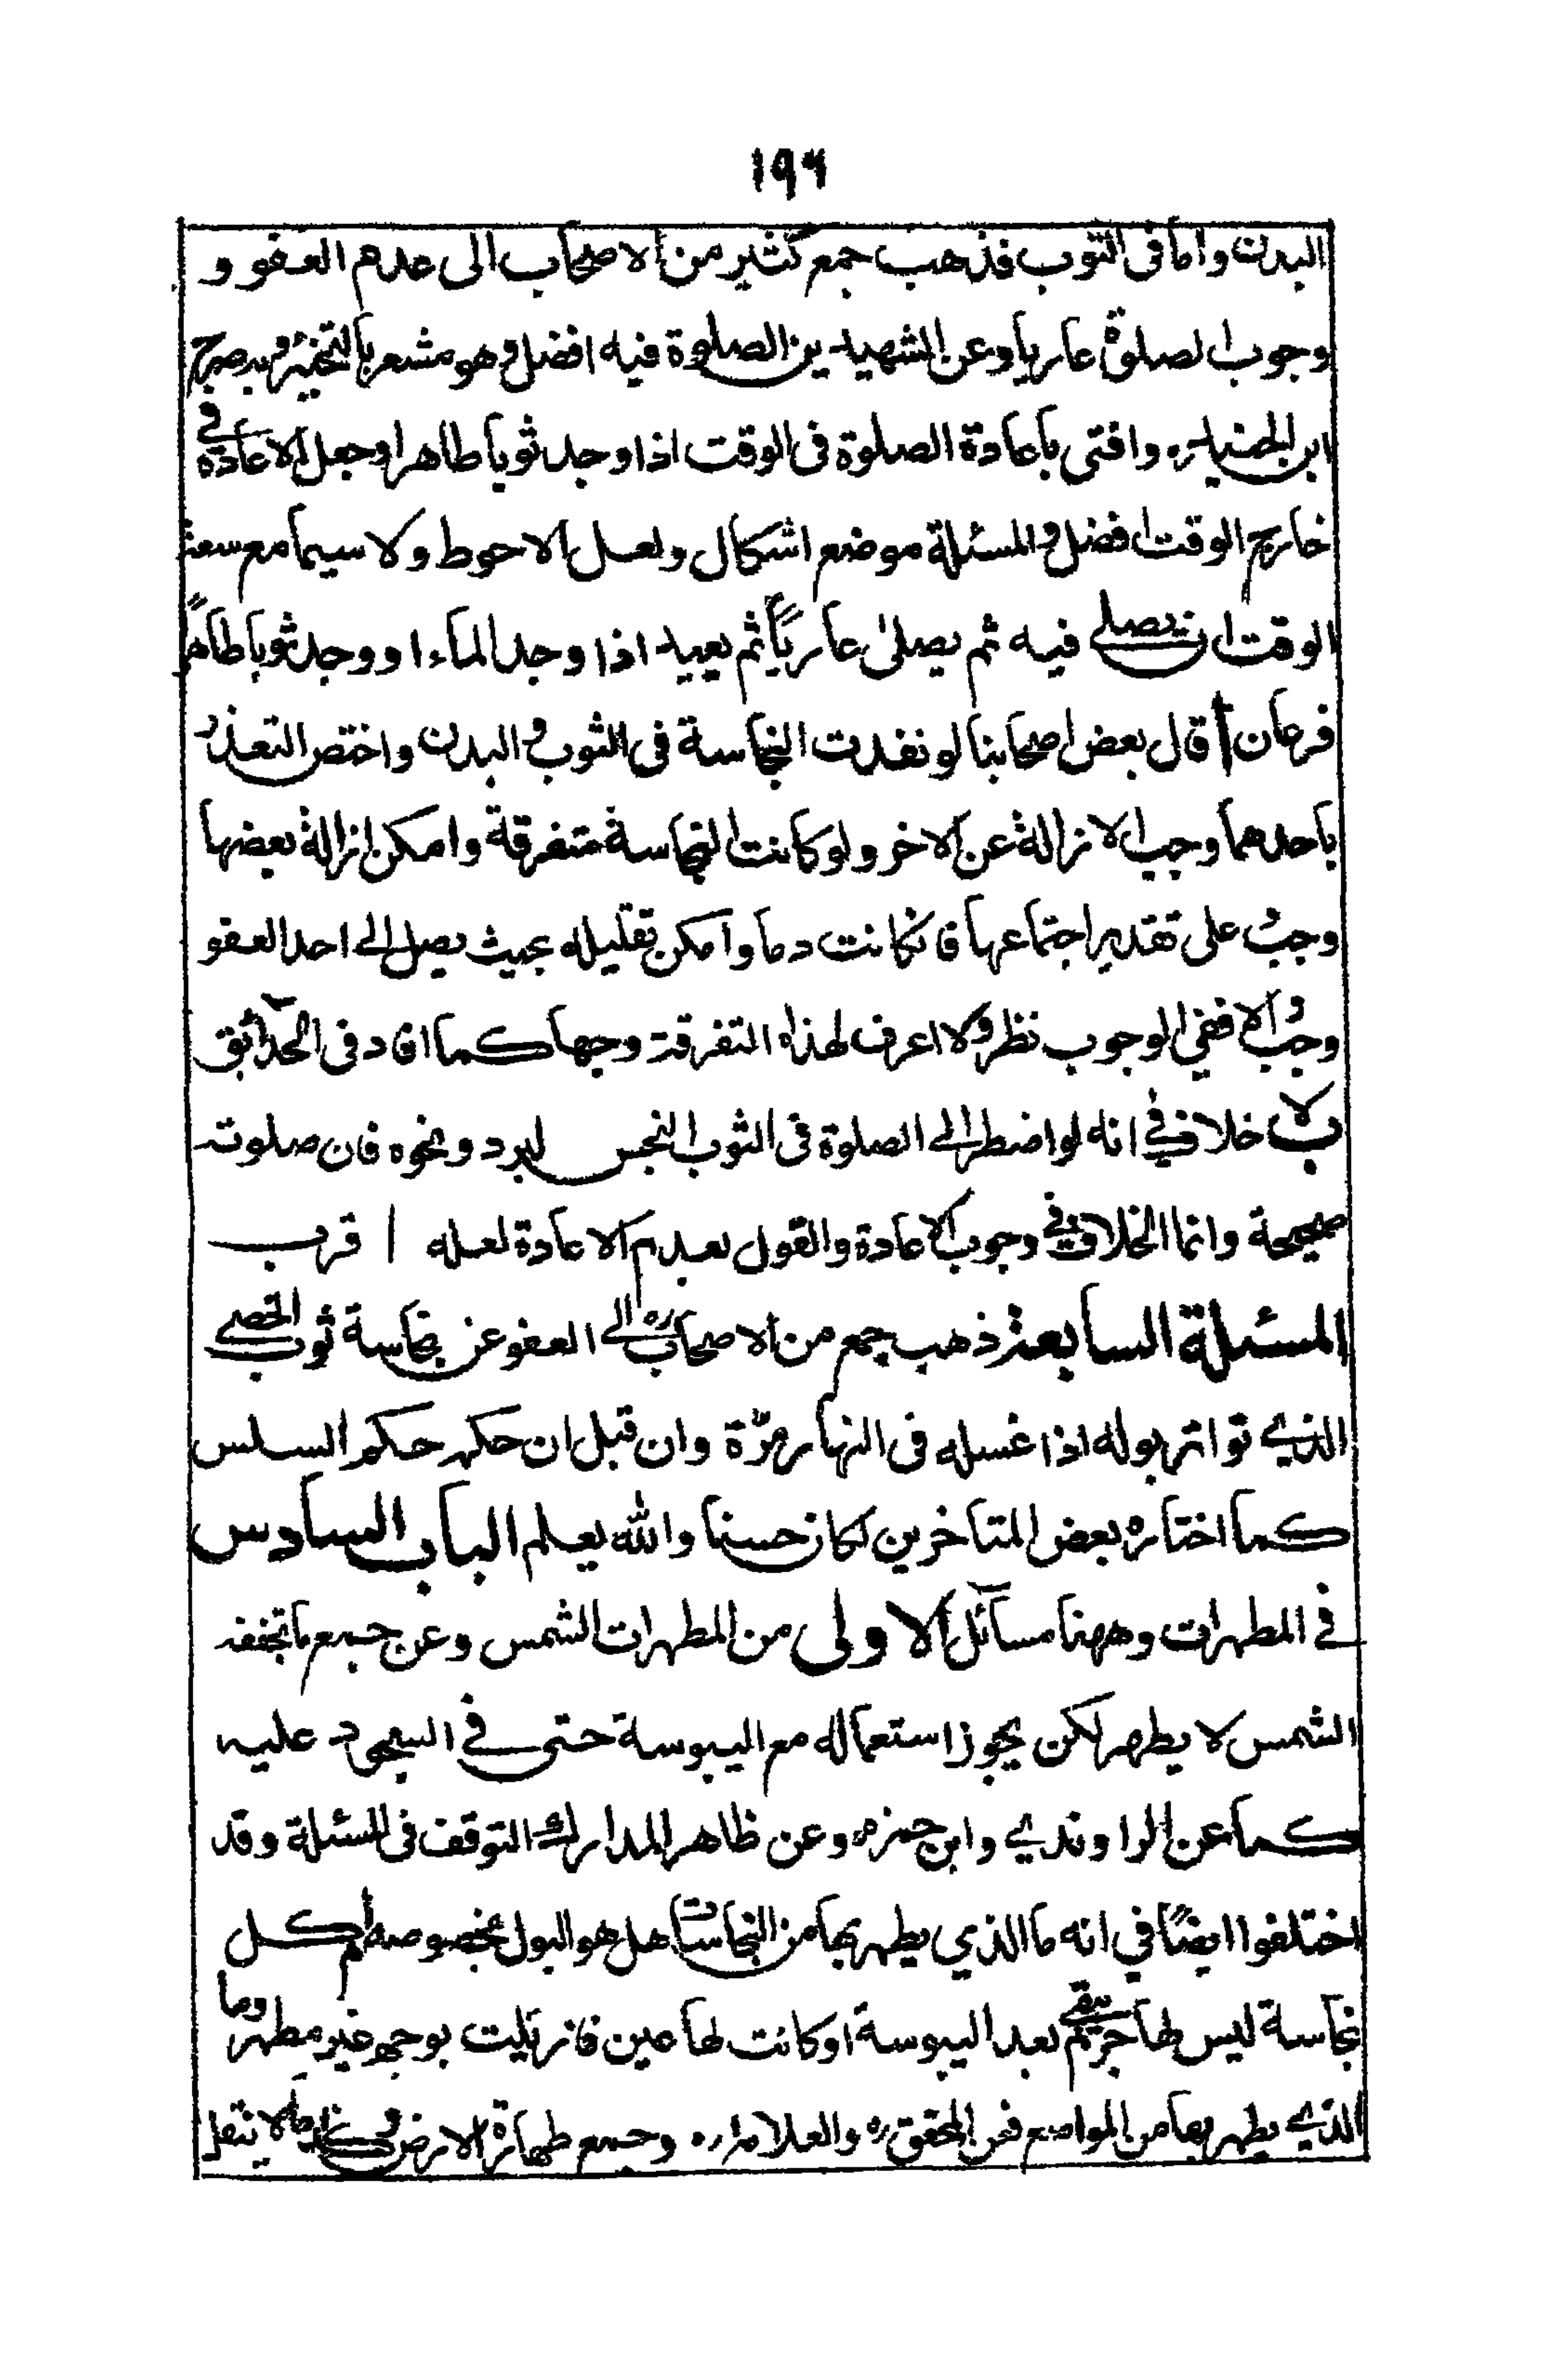 ١٩٦
البدن واما فى الثوب فذهب جمع كثير من الاصحاب الى عدم العفو و
وجوب الصلوة عاريا وعن الشهيدين الصلوة فيه افضل وهو مشعر بالتخيير وبه صرح
ابن الجنيد ره وافتى باعادة الصلوة فى الوقت اذا وجد ثوبا طاهرا وجعل الاعادة في
خارج الوقت افضل والمسئلة موضع اشكال ولعل الاحوط ولا سيما مع سعة
الوقت ان يصلي فيه ثم يصلى عارياً ثم يعيد اذا وجد الماء او وجد ثوبا طاهراً
فرعان أ قال بعض اصحابنا لو نفدت النجاسة فى الثوب و البدن واختص التعذر
باحدهما وجب الازالة عن الاخر ولو كانت النجاسة متفرقة وامكن ازالة بعضها
وجب على تقدير اجتماعها فان كانت دما وامكن تقليله بحيث يصل الى احد العفو
وجب والا ففي الوجوب نظر ولا اعرف لهذه التفرقة وجها كما افاد فى الحدائق
ب لا خلاف في انه لو اضطر الى الصلوة فى الثوب النجس لبرد ونحوه فان صلوته
صحيحة وانما الخلاف في وجوب الاعادة والقول بعدم الاعادة لعله اقرب
المسئلة السابعة ذهب جمع من الاصحاب ره الى العفو عن نجاسة ثوب الخصي
الذي تواتر بوله اذا غسله فى النهار مرّة وان قيل ان حكمه حكم السلس
كما اختاره بعض المتاخرين لكان حسنا والله يعلم الباب السادس
في المطهرات وههنا مسائل الاولى من المطهرات الشمس وعن جمع ما تجففه
الشمس لا يطهر لكن يجوز استعماله مع اليبوسة حتى في السجود عليه
كما عن الراوندي وابن حمزه وعن ظاهر المدارك التوقف فى المسئلة وقد
اختلفوا ايضًا في انه ما الذي يطهر بها من النجاسات هل هو البول بخصوصه أم كل
نجاسة ليس لها جرم يبقى بعد اليبوسة او كانت لها عين فازيلت بوجه غير مطهر وما
الذي يطهر بها من المواضع فعن المحقق ره والعلامه ره وجمع طهارة الارض و كلما لا ينقل